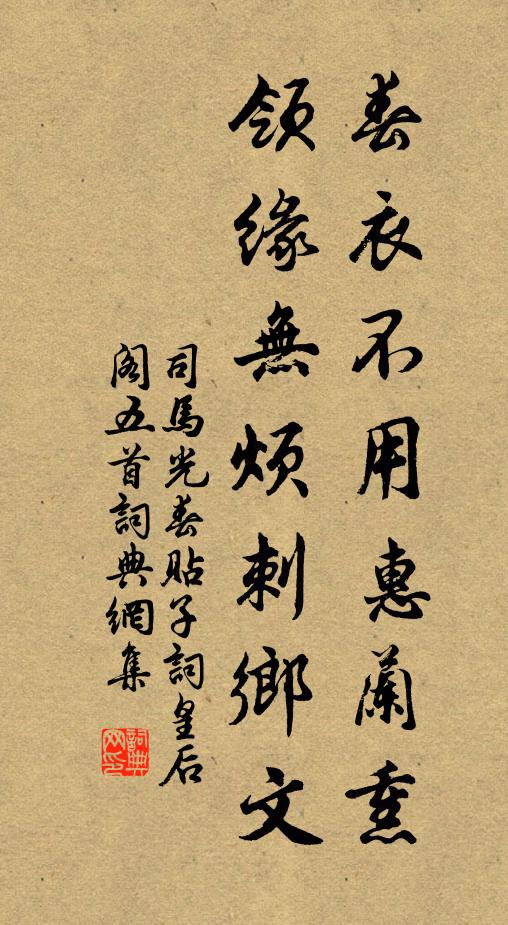 春衣不用惠蘭熏
領緣無煩刺鄉文
司馬光春貼子詞皇后
閣五首詞典網集
詞典网印